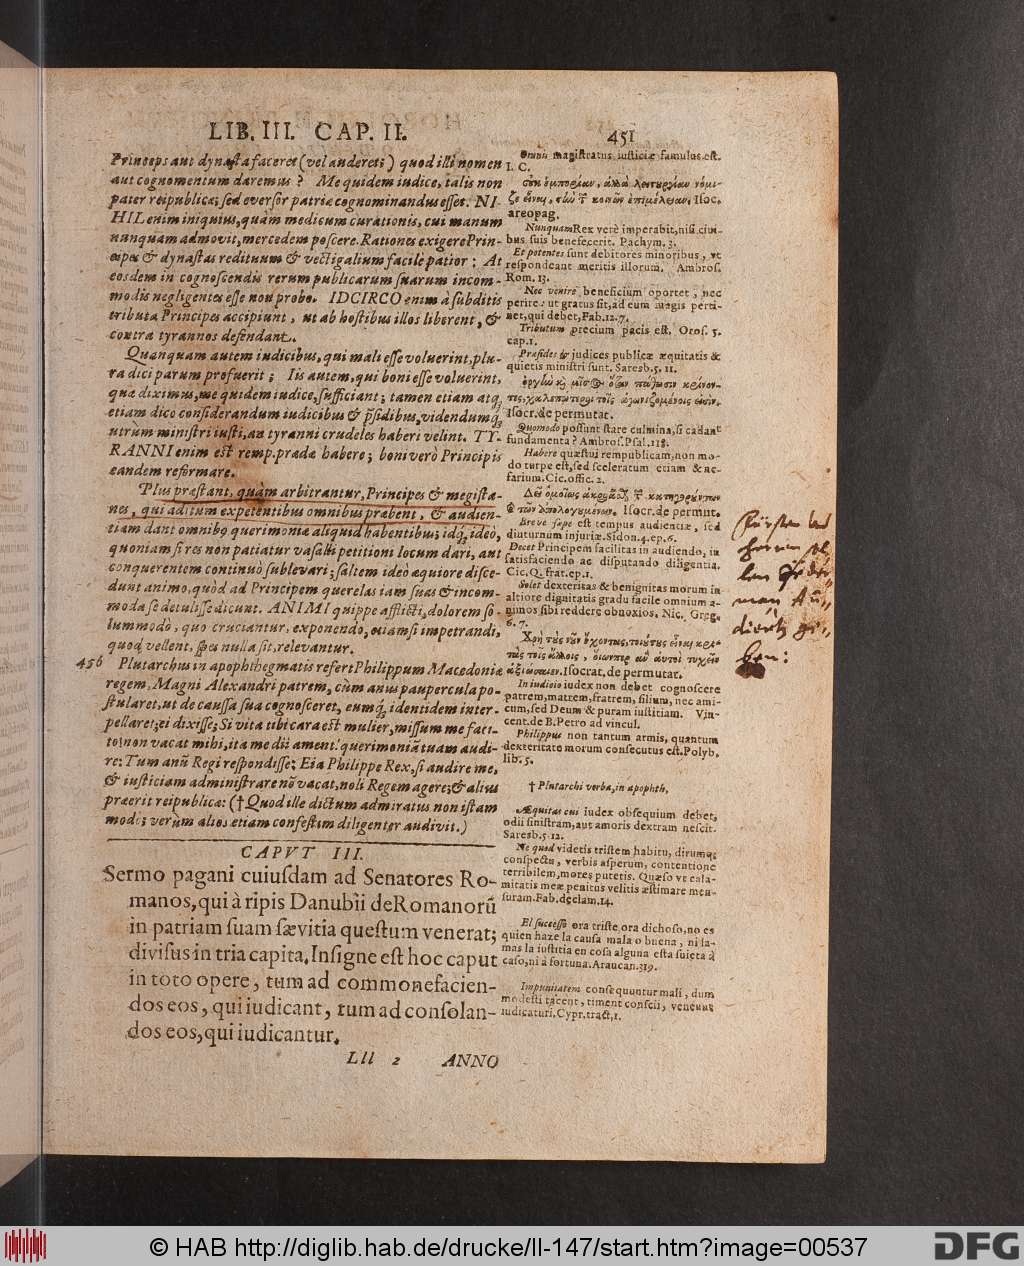 LIB. III. CAP. II. 451
Princeps aut dynasta faceret (vel auderet;) quod illi nomen
aut cognomentum daremus? Me quidem iudice, talis non
pater reipublicæ; sed eversor patriæ cognominandus esset. NI-
HIL enim iniquius, quàm medicum curationis, cui manum
nunquam admovit, mercedem poscere. Rationes exigere Prin-
cipes & dynastas redituum & vectigalium facilè patior: At
eosdem in cognoscendis rerum publicarum suarum incom-
modis negligentes esse non probo. IDCIRCO enim à subditis
tributa Principes accipiunt, ut ab hostibus illos liberent, &
contra tyrannos defendant.
Quanquam autem iudicibus, qui mali esse voluerint, plu-
ra dici parum profuerit; Iis autem, qui boni esse voluerint,
quæ diximus, me quidem iudice, sufficiant; tamen etiam atq;
etiam dico considerandum iudicibus & p̃sidibus, videndumq́;
utrùm ministri iusti, an tyranni crudeles haberi velint. TY-
RANNI enim est remp. prædæ habere; boni verò Principis
eandem reformare.
Plus præstant, quàm arbitrantur, Principes & megista-
nes, qui aditum expetentibus omnibus præbent, & audien-
tiam dant omnibꝰ querimoniæ aliquid habentibus; idq́; ideò,
quoniam si res non patiatur vasalli petitioni locum dari, aut
conquerentem continuò sublevari; saltem ideò æquiore disce-
dunt animo, quòd ad Principem querelas iam suas & incom-
moda se detulisse dicunt. ANIMI quippe afflicti, dolorem so-
lummodò, quo cruciantur, exponendo, etiamsi impetrandi,
quod vellent, spes nulla sit, relevantur.
456 Plutarchus in apophthegmatis refert Philippum Macedoniæ
regem, Magni Alexandri patrem, cùm anus paupercula po-
stularet, ut de caussa sua cognosceret, eumq́; identidem inter-
pellaret; ei dixisse; Si vita tibi cara est mulier, missum me faci-
to: non vacat mihi, ita me dii ament! querimoniã tuam audi-
re: Tum anũ Regi respondisse; Eia Philippe Rex, si audire me,
& iusticiam administrare nõ vacat, noli Regem agere; & alius
præerit reipublicæ: († Quod ille dictum admiratus non istam
modò; verùm alios etiam confestim diligenter audivit.)
CAPVT III.
Sermo pagani cuiusdam ad Senatores Ro-
manos, qui à ripis Danubii de Romanorũ
in patriam suam sævitia questum venerat;
divisus in tria capita. Insigne est hoc caput
in toto opere, tum ad commonefacien-
dos eos, qui iudicant, tum ad consolan-
dos eos, qui iudicantur.
Lll 2 ANNO
Omnis magistratus iusticiæ famulus est.
I. C.
Isoc.
areopag.
Nunquam Rex verè imperabit, nisi civi-
bus suis benefecerit. Pachym. 3.
Et potentes sunt debitores minoribus, vt
respondeant meritis illorum. Ambros.
Rom. 13.
Nec venire beneficium oportet, nec
perire: ut gratus sit, ad eum magis perti-
net, qui debet, Fab. 12. 7.
Tributum precium pacis est. Oros. 5.
cap. 1.
Præsides & judices publicæ æquitatis &
quietis ministri sunt. Saresb. 5. 11.
Isocr. de permutat.
Quomodo possunt stare culmina, si cadant
fundamenta? Ambros. Psal. 118.
Habere quæstui rempublicam, non mo-
do turpe est, sed sceleratum etiam & ne-
farium. Cic. offic. 2.
Isocr. de permut.
Breve sæpe est tempus audientiæ, sed
diuturnum injuriæ. Sidon. 4. ep. 6.
Decet Principem facilitas in audiendo, in
satisfaciendo ac disputando diligentia.
Cic. Q. frat. ep. 1.
Solet dexteritas & benignitas morum in
altiore dignitatis gradu facile omnium a-
nimos sibi reddere obnoxios. Nic. Greg.
6. 7.
Isocrat. de permutat.
In iudicio iudex non debet cognoscere
patrem, matrem, fratrem, filium, nec ami-
cum, sed Deum & puram iustitiam. Vin-
cent. de B. Petro ad vincul.
Philippus non tantum armis, quantum
dexteritate morum consecutus est. Polyb.
lib. 5.
† Plutarchi verba, in apophth.
Æquitas cui iudex obsequium debet,
odii sinistram, aut amoris dextram nescit.
Saresb. 5. 12.
Ne quod videtis tristem habitu, dirumq;
conspectu, verbis asperum, contentione
terribilem, mores putetis. Quæso vt cala-
mitatis meæ penitus velitis æstimare men-
suram. Fab. declam. 14.
El successo ora triste, ora dichoso, no es
quien haze la causa mala o buena, ni ja-
mas la iustitia en cosa alguna esta sujeta à
caso, ni à fortuna. Araucan. 319.
Impunitatem consequuntur mali, dum
modesti tacent, timent conscii, veneunt
iudicaturi. Cypr. tract. 1.
© HAB http://diglib.hab.de/drucke/ll-147/start.htm?image=00537
DFG